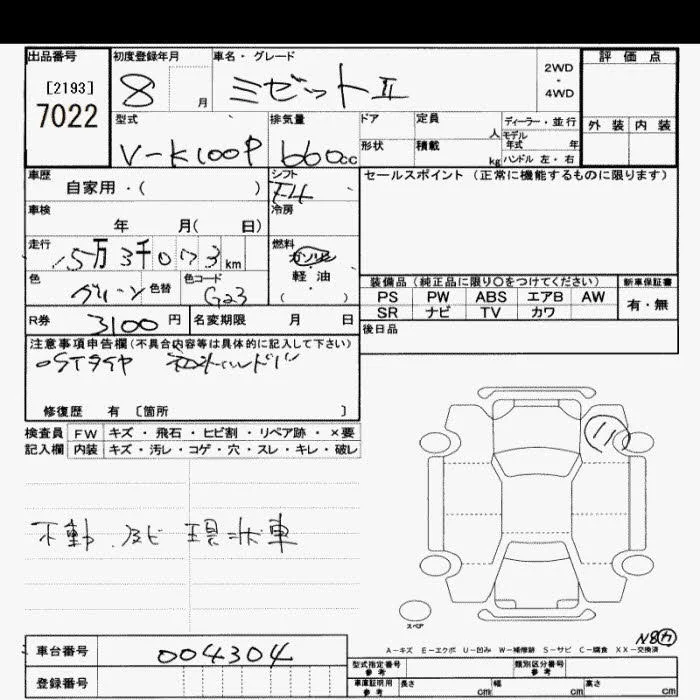 出品番号 初度登録年月 車名・グレード 評価点
[2193] 7022 8 月 ミゼットII 2WD ・ 4WD
型式 排気量 ドア 定員 人 ディーラー・並行 外装 内装
モデル年式 年
V-K100P 660cc 形状 積載 kg ハンドル 左・右
車歴 シフト セールスポイント (正常に機能するものに限ります)
自家用・( ) F4
車検 冷房
年 月( 日)
走行 燃料
15万3千073km ガソリン
軽油
色 色替 色コード ( )
グリーン G23
装備品 (純正品に限り○をつけてください) 新車保証書
PS PW ABS エアB AW 有・無
SR ナビ TV カワ
R券 3100円 名変期限 月 日 後日品
注意事項申告欄(不具合内容等は具体的に記入して下さい)
STタイヤ
修復歴 有 〔箇所 〕
検査員 FW キズ・飛石・ヒビ割・リペア跡・×要
記入欄 内装 キズ・汚レ・コゲ・穴・スレ・キレ・破レ
11
不動 サビ 現状車
スペア
A-キズ E-エクボ U-凹み W-補修跡 S-サビ C-腐食 XX-交換済
車台番号 004304
型式指定番号 参考 類別区分番号 参考
登録番号 車庫証明用 参考 長さ cm 幅 cm 高さ cm